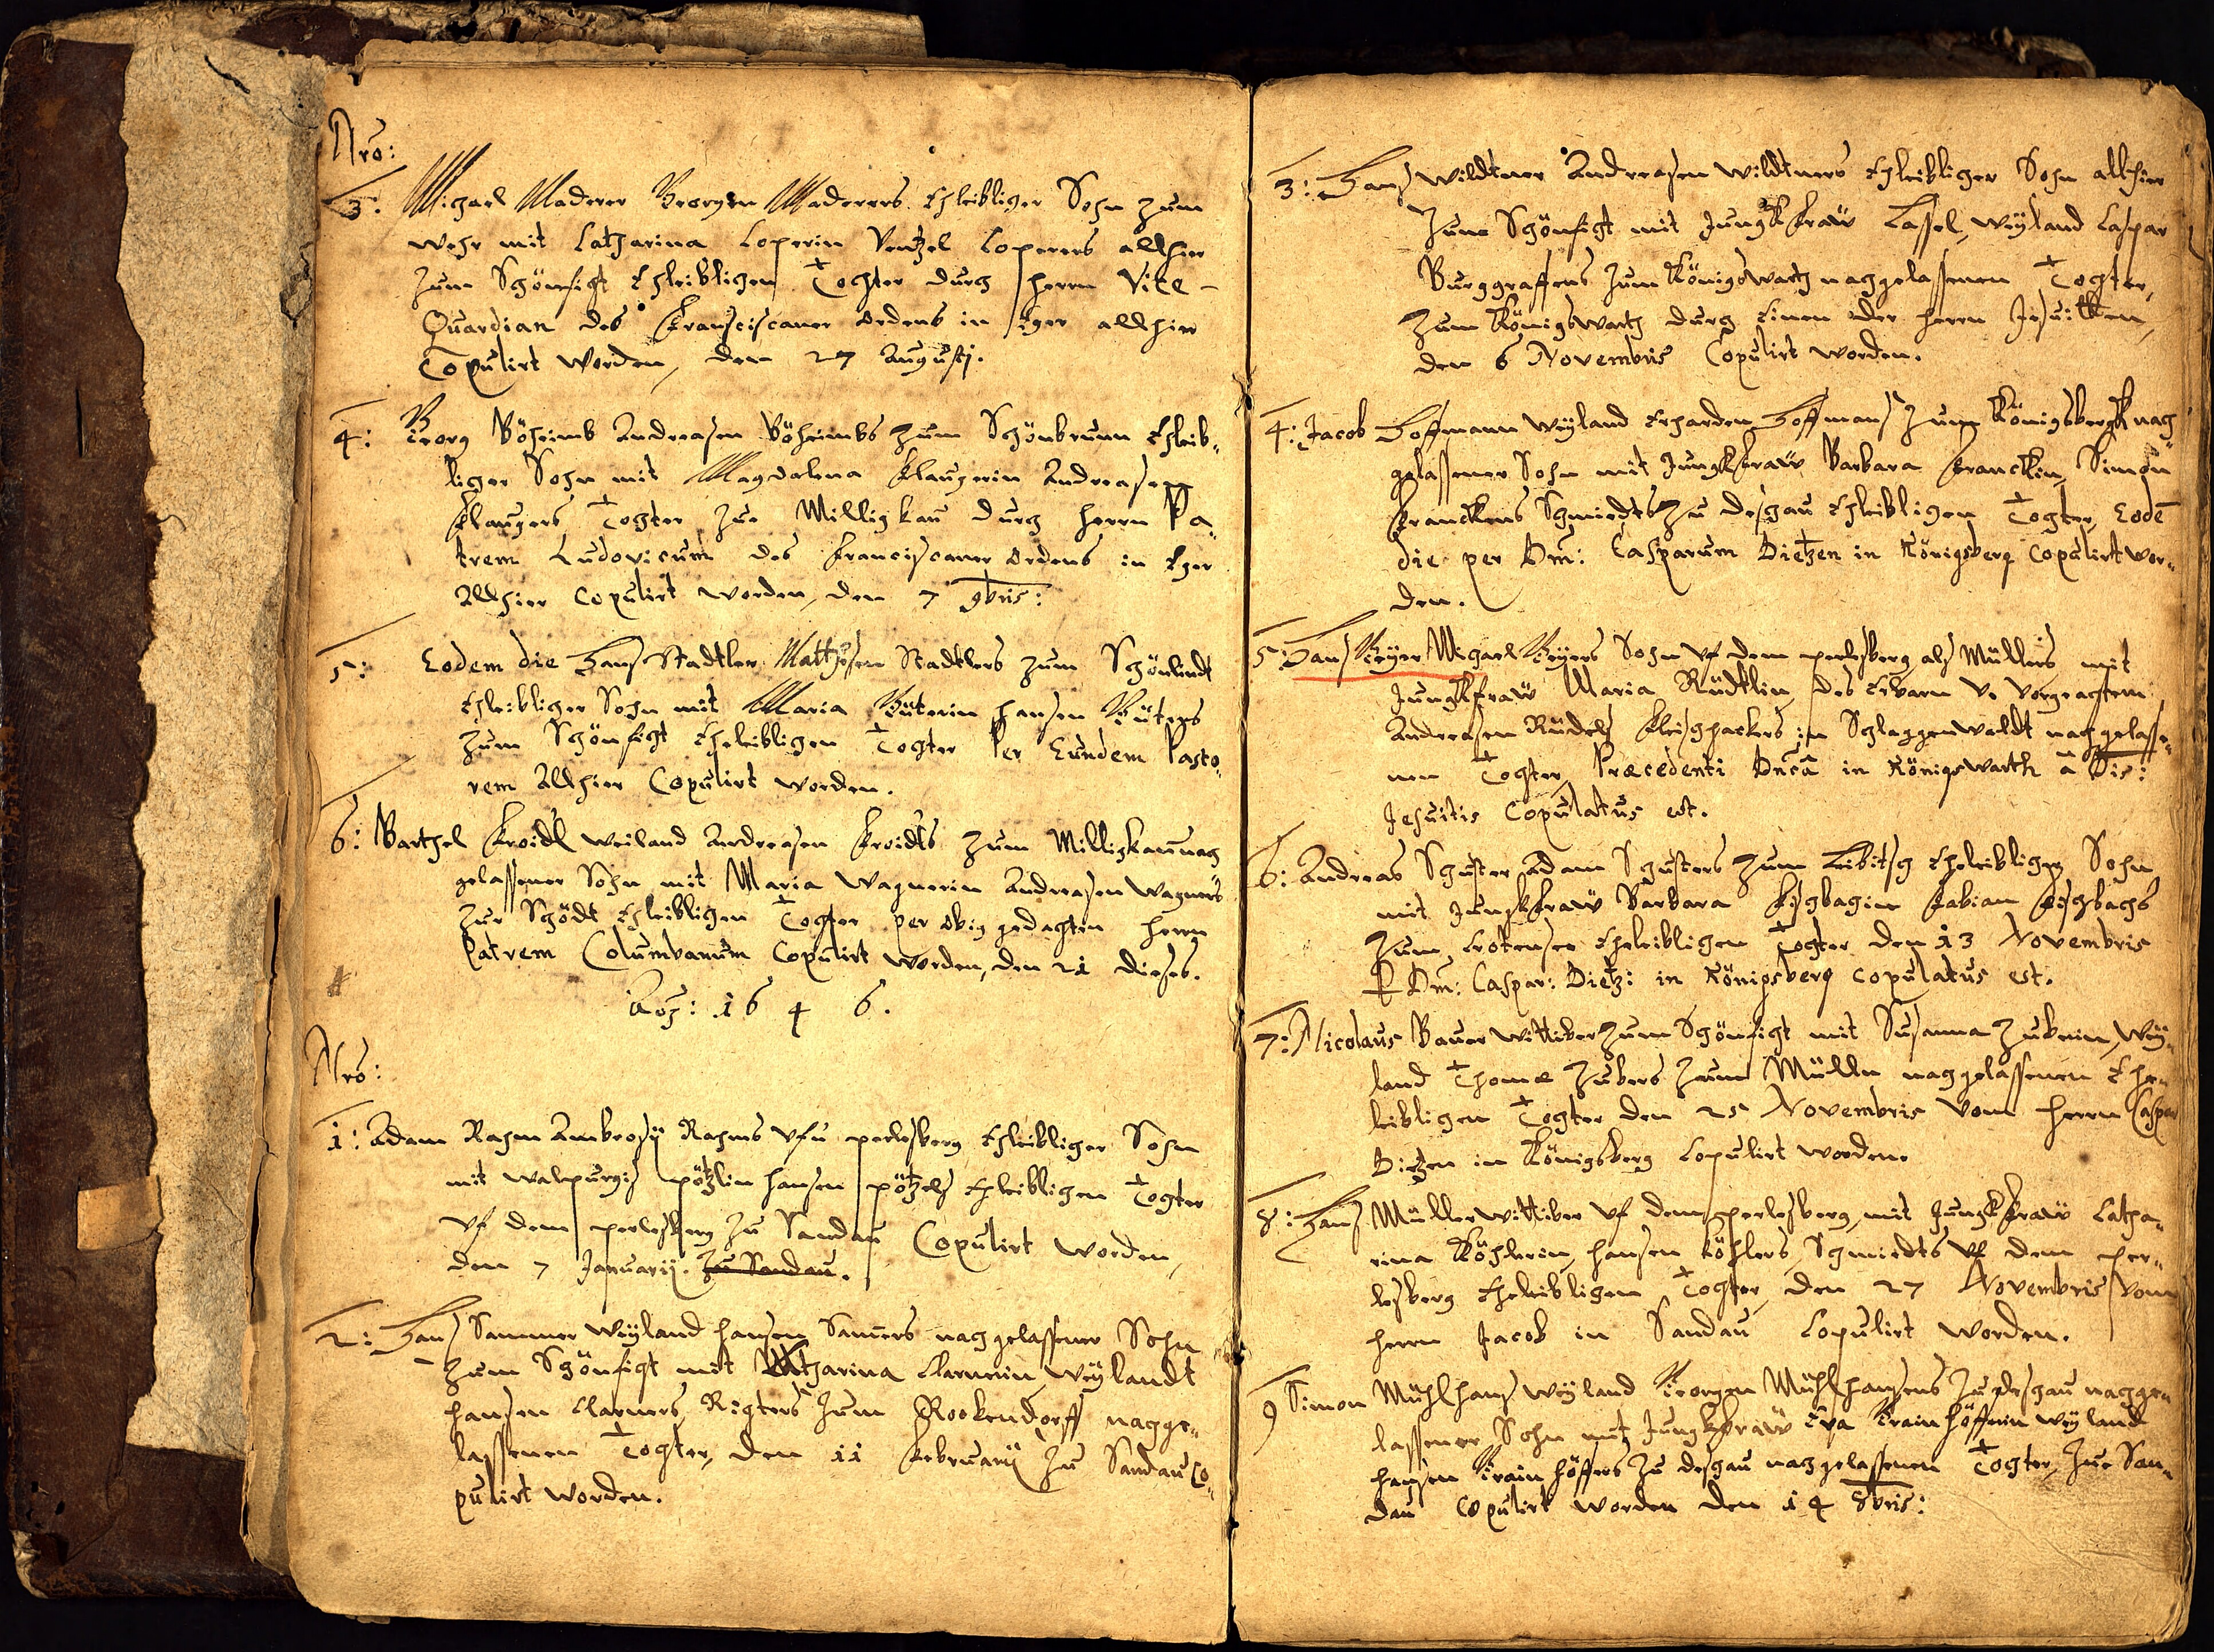 Nro:
3: Michael Maderer Georgen Maderers Ehleiblicher Sohn zum
wehr mit Catharina Loperin Ventzel Loperers allhier
zum Schönficht Ehleiblichen Tochter durch herrn Vice-
Quardian des Franciscaner ordens in Eger allhier
Copulirt worden, den 27 Augusti.
4: Georg Böheimb Andreasen Böheimbs zum Schönbrunn Ehleib-
licher Sohn mit Magdalena Klaugerin Andreasen
Klaugers Tochter zur Milligkau durch herrn Pa-
trem Ludovicum des Franciscaner ordens in Eger
Allhier Copulirt worden, den 7 9bris:
5: Eodem die Hanß Stadtler Matthesen Stadtlers zum Schönlindt
Ehleiblicher Sohn mit Maria Güterin hansen Güters
zum Schönficht Eheleiblichen Tochter Per Eundem Pasto-
rem Allhier Copulirt worden.
6: Barthel Kroidl weiland Andreasen Kroidls zum Milligkau nach
gelassener Sohn mit Maria Wagnerin Andreasen Wagners
zur Schödt Ehleiblichen Tochter per obig gedachten herrn
Patrem Columbanum Copulirt worden, den 21 dieses.
Anno: 1646.
Nro:
1: Adam Rahm Ambrosÿ Rahms vfn perlesberg Ehleiblicher Sohn
mit Walpurgiß pötzlin hansen pötzels Ehleiblichen Tochter
vf dem perlesberg zu Sandau Copulirt worden,
den 7 Januarij. zu Sandau.
2: Hanß Sammer Weÿland hansen Sam̃ers nachgelassener Sohn
zum Schönficht mit Catharina Clarnerin Weÿlandt
hansen Clarners Richters zum Rockendorff nachge-
lassenen Tochter, den 11 Februarij zu Sandau Co-
pulirt worden.
3: Hanß Wildtner Andreasen Wildtners Ehleiblicher Sohn allhier
Zum Schönficht mit Jungkfraw Cassel, weÿland Caspar
Burggraffens zum Königswarth nachgelassenen Tochter,
zum Königswarth durch Einen der herrn Jesuitten,
den 6 Novembris Copulirt worden.
4: Jacob Hoffmann Weÿland Erharden Hoffmanß zum Königsbergk nach
gelassener Sohn mit Jungkfraw Barbara Franckin, Simon
Franckens Schmiedts zu deschau Ehleiblichen Tochter, Eodē
die per Dm̃: Casparum Dietzen in Königsberg Copulirt wor-
den.
5: Hanß Geÿer Michael Geÿers Sohn vf dem perlesberg alß Müllers mit
Jungkfraw Maria Rüdtlin, des Erbarn v. vorgeachtem
Andreasen Rüdels Fleischhackers in Schlaggenwaldt nachgelasse-
nen Tochter, Præcedenti Dnĩca in Königswarth à Dñis:
Jesuitis Copulatus est.
6: Andreas Schuster Adam Schusters zum Leibitsch Eheleiblicher Sohn
mit Jungkfraw Barbara Fischbachin Fabian Fischbachs
zum Krotensee Eheleiblichen Tochter den 13 Novembris
P Dm̃: Caspar: Dietz: in Königsberg copulatus est.
7: Nicolaus Bauer wittiber zum Schönficht mit Susanna Zuberin, Weÿ-
land Thomæ Zubers zum Mülln nachgelassenen Ehe-
leiblichen Tochter den 25 Novembris vom herrn Caspar
Dietzen in Königsberg Copulirt worden.
8: Hanß Müller wittiber vf dem perlesberg, mit Jungkfraw Catha-
rina Köhlerin, hansen Köhlers, Schmiedts vf dem per-
lesberg Eheleiblichen Tochter, den 27 Novembris vom
herrn Jacob in Sandau Copulirt worden.
9 Simon Mühlhanß Weÿland Georgen Mühlhansens zu deschau nachge-
lassener Sohn mit Jungkfraw Eva Krainhöfferin weÿland
hansen Krainhöffers zu deschau nachgelassenen Tochter, zur San-
dau Copulirt worden den 14 8bris: